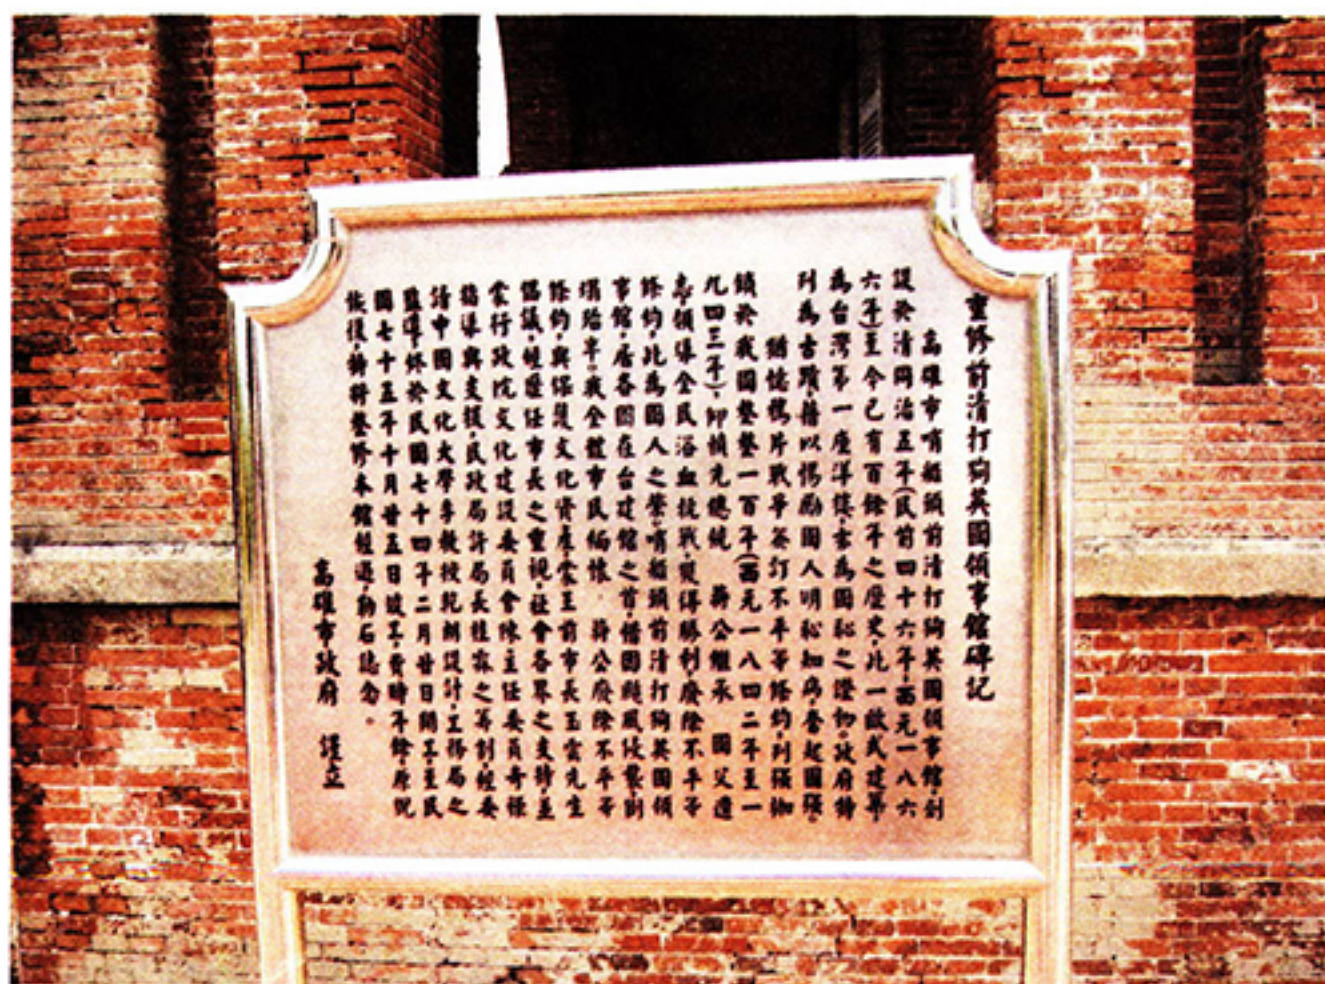 重修前清打狗英國領事館碑記
高雄市哨船頭前清打狗英國領事館,創
設於清同治五年(民前四十六年,西元一八六
六年)至今已有百餘年之歷史,此一歐式建築
為台灣第一座洋樓,亦為國恥之證物。政府特
列為古蹟,藉以惕勵國人明恥知病,奮起圖強。
猶憶鴉片戰爭簽訂不平等條約,列強枷
鎖於我國整整一百年(西元一八四二年至一
九四三年),仰賴先總統 蔣公繼承 國父遺
志,領導全民浴血抗戰獲得勝利,廢除不平等
條約,此為國人之榮。哨船頭前清打狗英國領
事館,居各國在台建館之首,惜因颱風侵襲,創
塌殆半。我全體市民緬懷 蔣公廢除不平等
條約,與保護文化資產,蒙王前市長玉雲先生
倡議,經歷任市長之重視,社會各界之支持,並
蒙行政院文化建設委員會陳主任委員奇祿
指導與支援,民政局許局長桂霖之籌劃,經委
請中國文化大學李教授乾朗設計,工務局之
監導,終於民國七十四年二月廿日開工,至民
國七十五年十月廿五日竣工,費時年餘,原貌
恢復,特將整修本館經過,勒石誌念。
高雄市政府 謹立